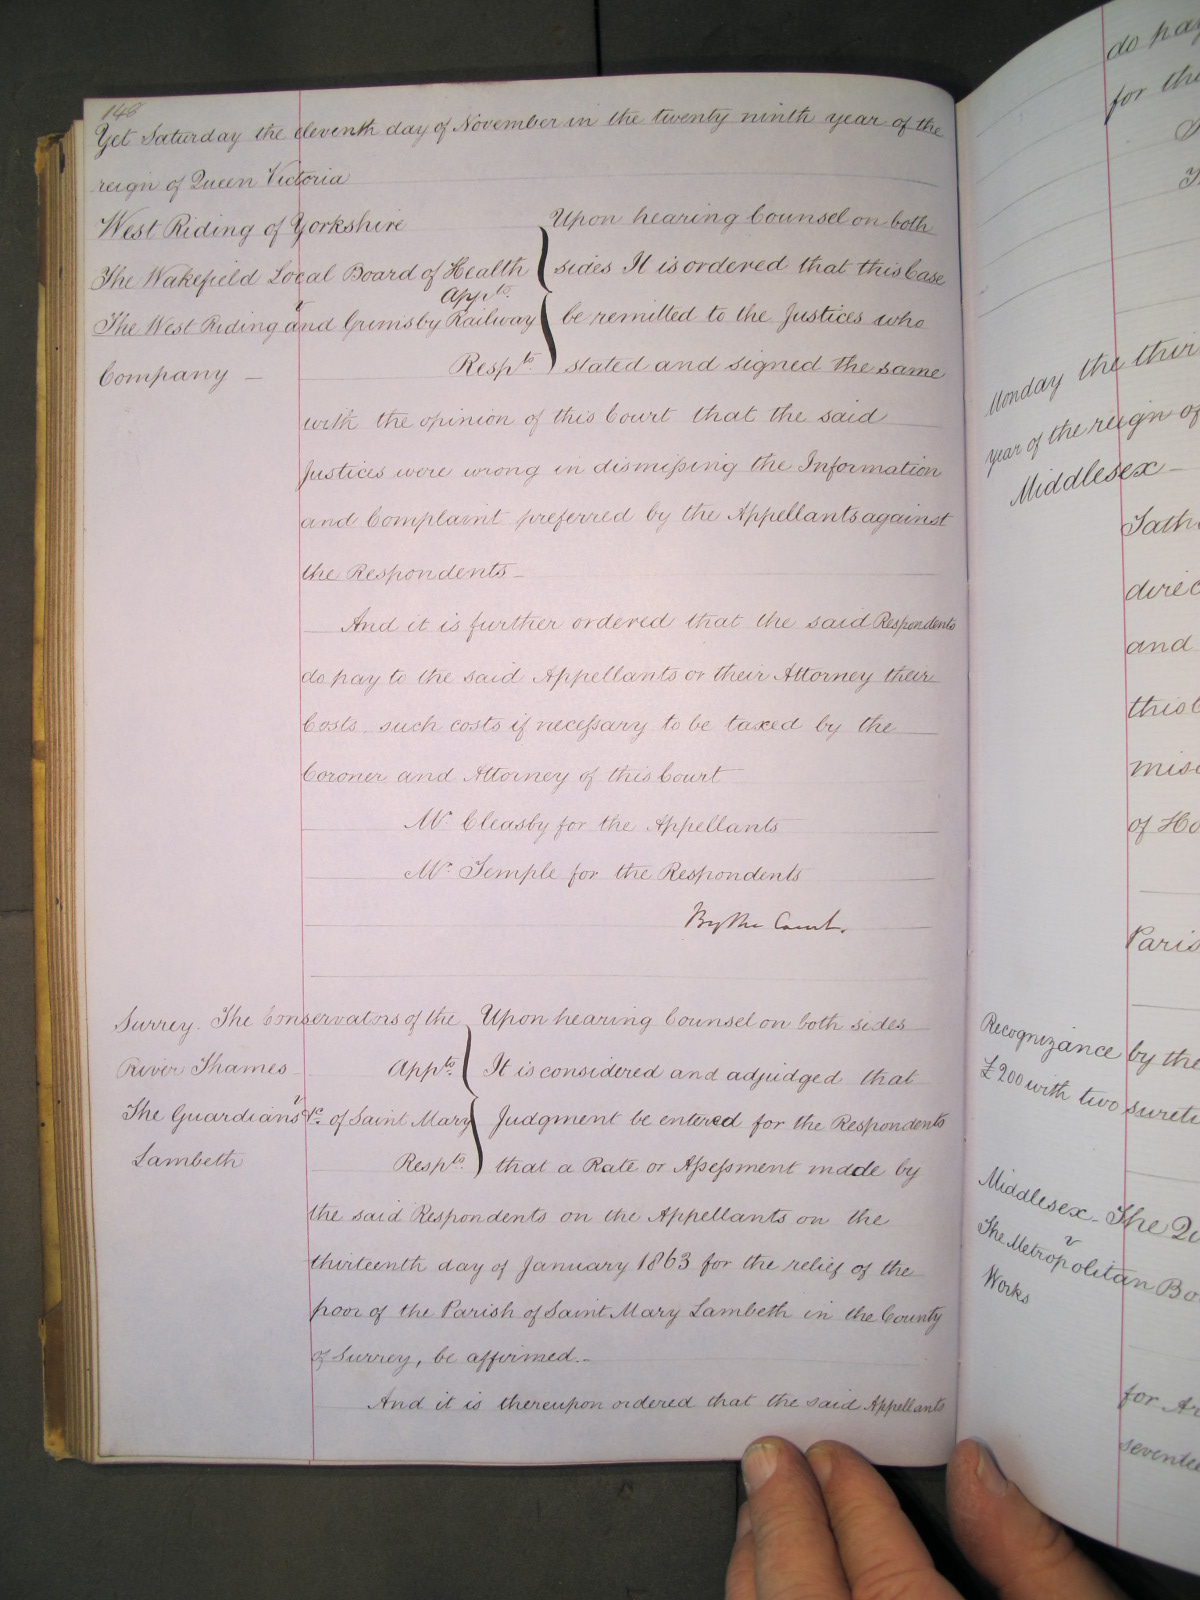 148
Yet Saturday the eleventh day of November in the twenty ninth year of the
reign of Queen Victoria
West Riding of Yorkshire
The Wakefield Local Board of Health
Appts.
v
The West Riding and Grimsby Railway
Respts.
Company –
Upon hearing Counsel on both
sides It is ordered that this Case
be remitted to the Justices who
stated and signed the same
with the opinion of this Court that the said
Justices were wrong in dismissing the Information
and Complaint preferred by the Appellants against
the Respondents –
And it is further ordered that the said Respondents
do pay to the said Appellants or their Attorney their
Costs such costs if necessary to be taxed by the
Coroner and Attorney of this Court
Mr. Cleasby for the Appellants
Mr. Temple for the Respondents
By the Court.
Surrey. The Conservators of the
River Thames Appts.
v
The Guardians &c. of Saint Mary
Lambeth Respts.
Upon hearing Counsel on both sides
It is considered and adjudged that
Judgment be entered for the Respondents
that a Rate or Assessment made by
the said Respondents on the Appellants on the
thirteenth day of January 1863 for the relief of the
poor of the Parish of Saint Mary Lambeth in the County
of Surrey, be affirmed. –
And it is thereupon ordered that the said Appellants
do pay
for the
Monday the
year of the reign of
Middlesex –
and
of
Recognizance by the
£200 with two
Middlesex – The
v
The Metropolitan
Works
for